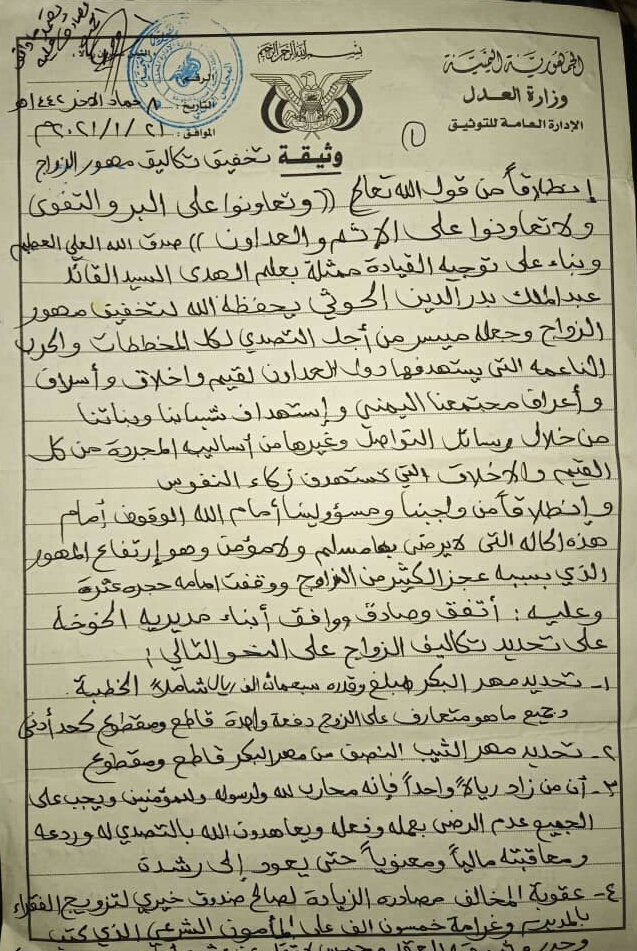 بسم الله الرحمن الرحيم
الجمهورية اليمنية
وزارة العدل
الإدارة العامة للتوثيق
الرقم
التاريخ: ٨ جماد الاخر ١٤٤٢هـ
الموافق: ٢٠٢١/١/٢١م
١
وثيقة تخفيق تكاليف مهور الزواج
إنطلاقاً من قول الله تعالى ((وتعاونوا على البر والتقوى
ولا تعاونوا على الإثم والعداون)) صدق الله العلي العظيم
وبناء على توجيه القيادة ممثلة بعلم الهدى السيد القائد
عبدالملك بدرالدين الحوثي يحفظه الله لتخفيق مهور
الزواج وجعله ميسر من أجل التصدي لكل المخططات والحرب
الناعمه التي يستهدفها دول العداون لقيم واخلاق وأسلاف
وأعراف مجتمعنا اليمني وإستهداف شبابنا وبناتنا
من خلال وسائل التواصل وغيرها من أساليبه المجردة من كل
القيم والاخلاق التي تستهدف زكاء النفوس
وإنطلاقاً من واجبنا ومسؤوليتنا أمام الله الوقوف أمام
هذه الحاله التي لايرضى بها مسلم ولامؤمن وهو إرتفاع المهور
الذي بسببه عجز الكثير من الزواج ووقفت امامه حجره عثرة
وعليه: أتفق وصادق ووافق أبناء مديريه الخوخة
على تحديد تكاليف الزواج على النحو التالي:
١- تحديد مهر البكر مبلغ وقدره سبعمائه الف ريال شاملاً الخطبة
وجميع ماهو متعارف على الزوج دفعة واحدة قاطع ومقطوع كحد أدنى
٢- تحديد مهر الثيب النصف من مهر البكر قاطع ومقطوع
٣- أن من زاد ريالاً واحداً فإنه محارب لله ولرسوله وللمؤمنين ويجب على
الجميع عدم الرضى بعمله وفعله ويعاهدون الله بالتصدي له وردعه
ومعاقبته مالياً ومعنوياً حتى يعود إلى رشدة
٤- عقوبة المخالف مصادره الزيادة لصالح صندوق خيري لتزويج الفقراء
بالمديريه وغرامة خمسون الف على المأمون الشرعي الذي كتب